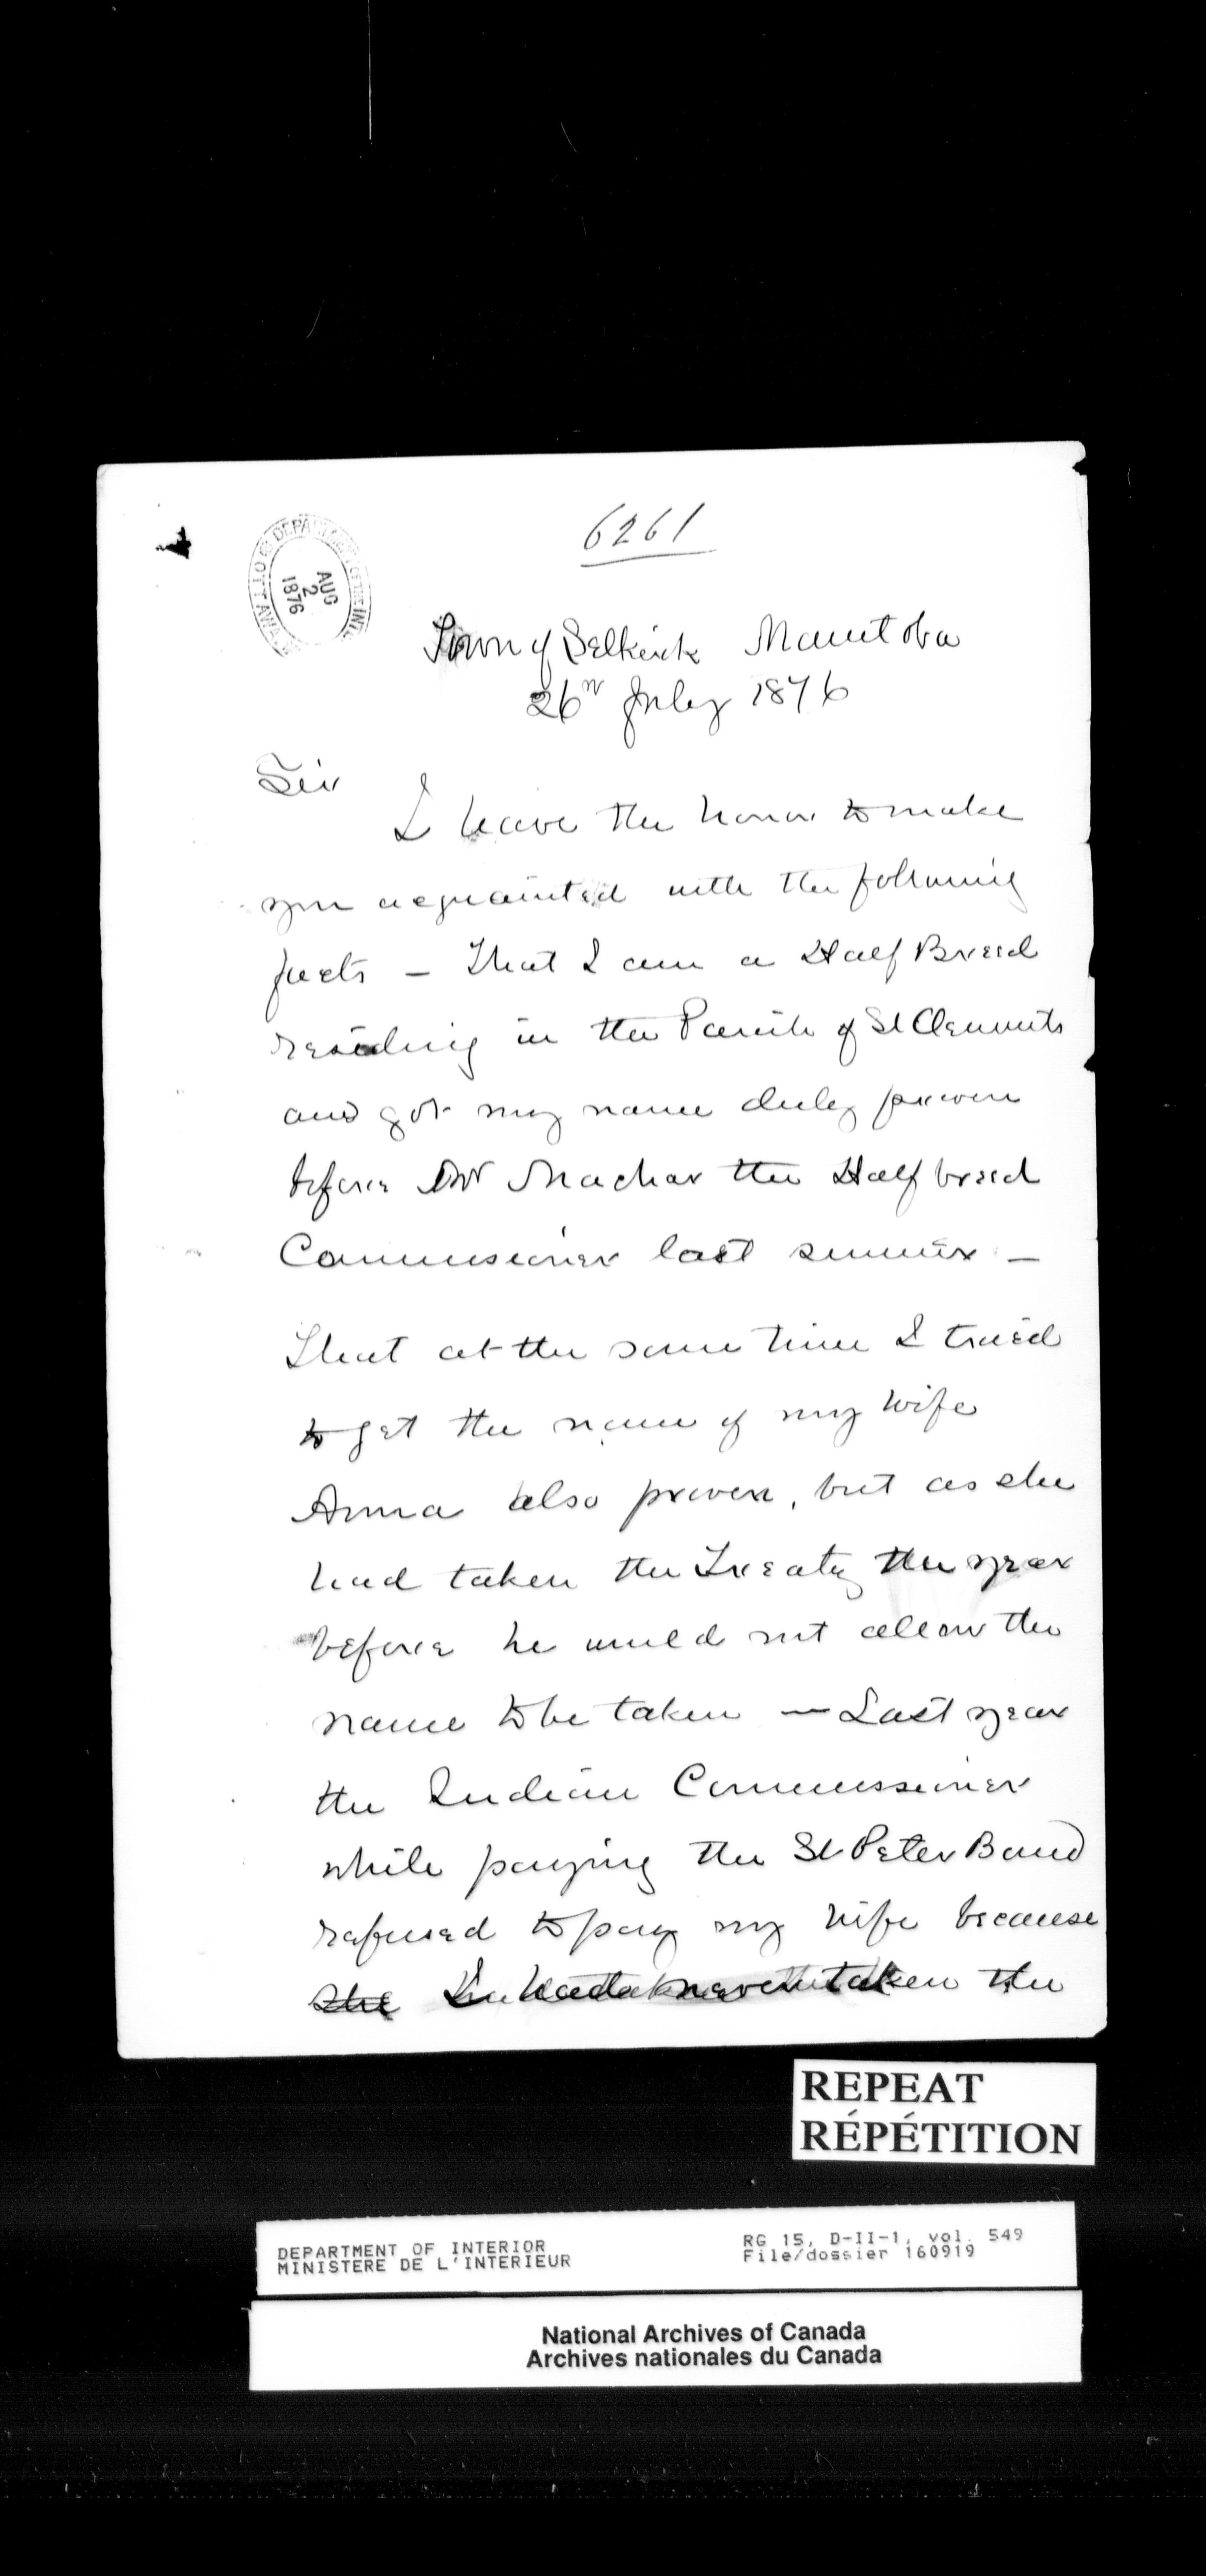 6261
DEPARTMENT OF THE INT
OTTAWA
AUG
2
1876
Town of Selkirk Manitoba
26th July 1876
Sir
I have the honor to make
you acquainted with the following
facts – That I am a Half Breed
residing in the Parish of St Clements
and got my name duly proven
before Mr Machar the Half breed
Commissioner last summer –
That at the same time I tried
to get the name of my wife
Anna also proven, but as she
had taken the Treaty the year
before he would not allow the
name to be taken – Last year
the Indian Commissioner
while paying the St Peter Band
refused to pay my wife because
she had taken the
REPEAT
RÉPÉTITION
DEPARTMENT OF INTERIOR
MINISTERE DE L'INTERIEUR
RG 15, D-II-1, vol. 549
File/dossier 160919
National Archives of Canada
Archives nationales du Canada